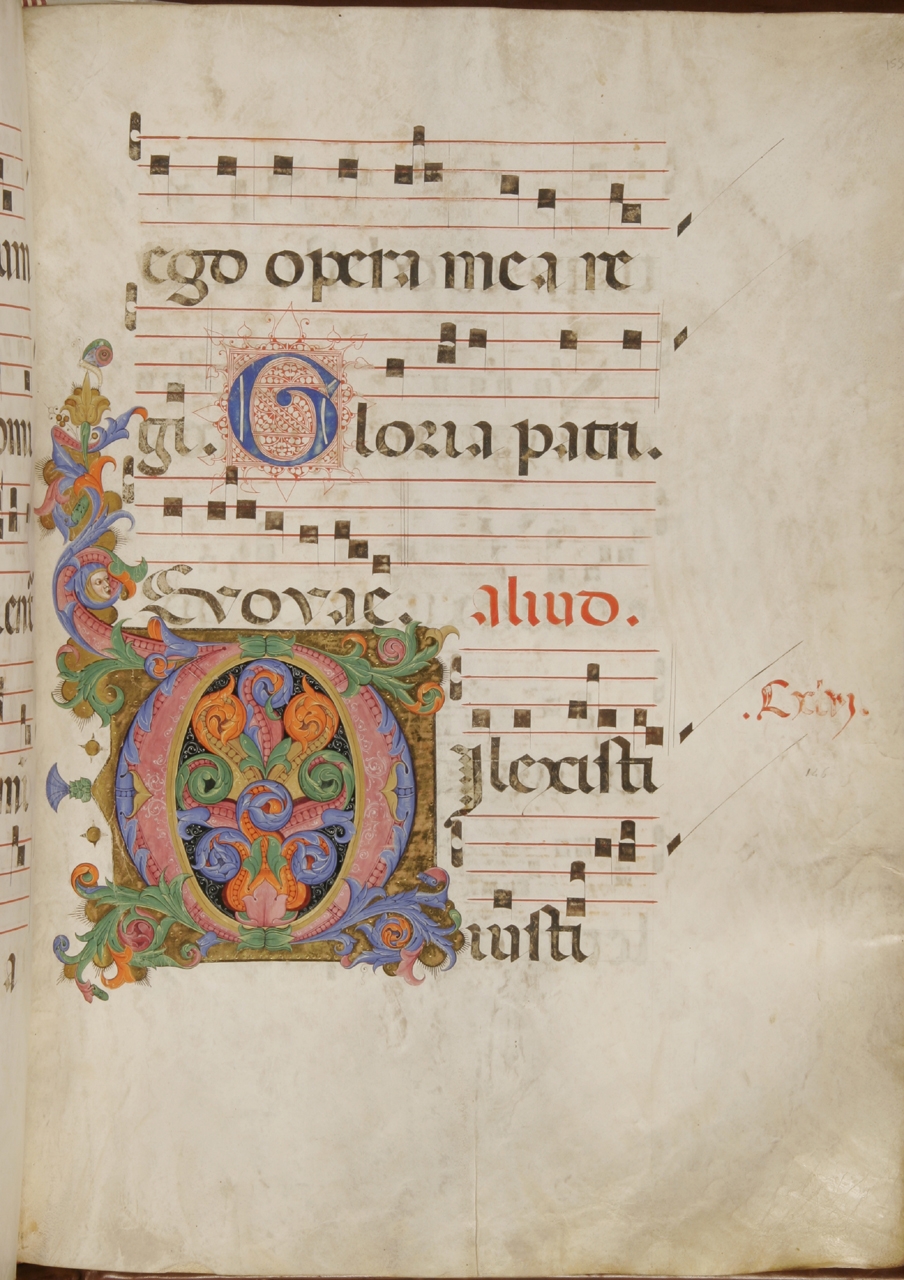 ego opera mea re
gi. Gloria patri.
Evovae. aliud.
Dilexisti
iusti